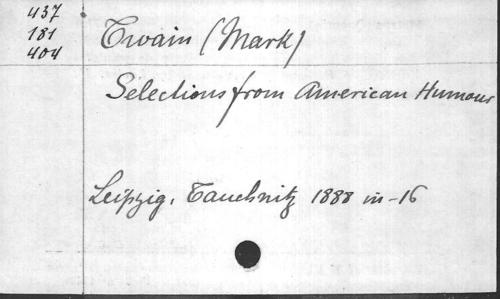 437
181
404
Twain (Mark)
Selections from American Humour
Leipzig, Tauchnitz 1888 in-16